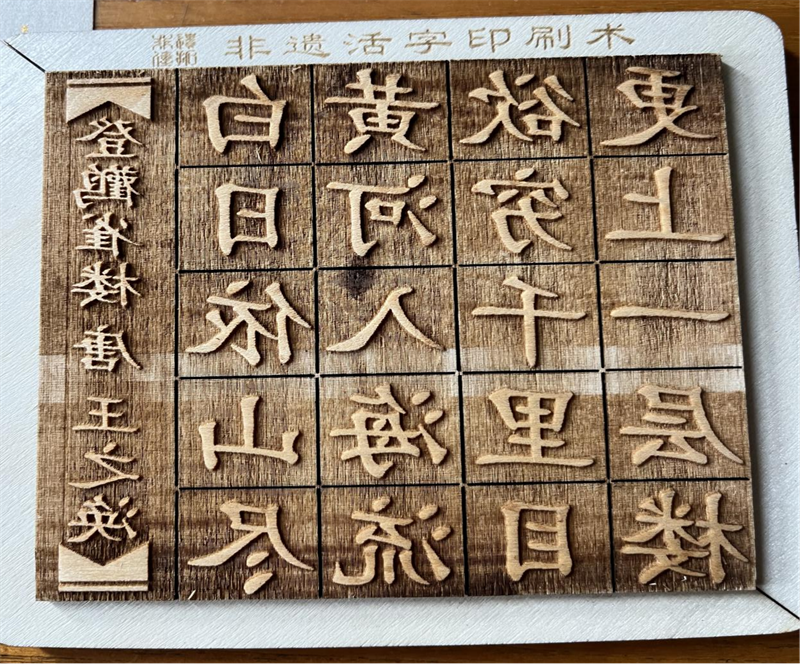 非遗活字印刷术
登鹳雀楼 唐 王之涣
白日依山尽
黄河入海流
欲穷千里目
更上一层楼